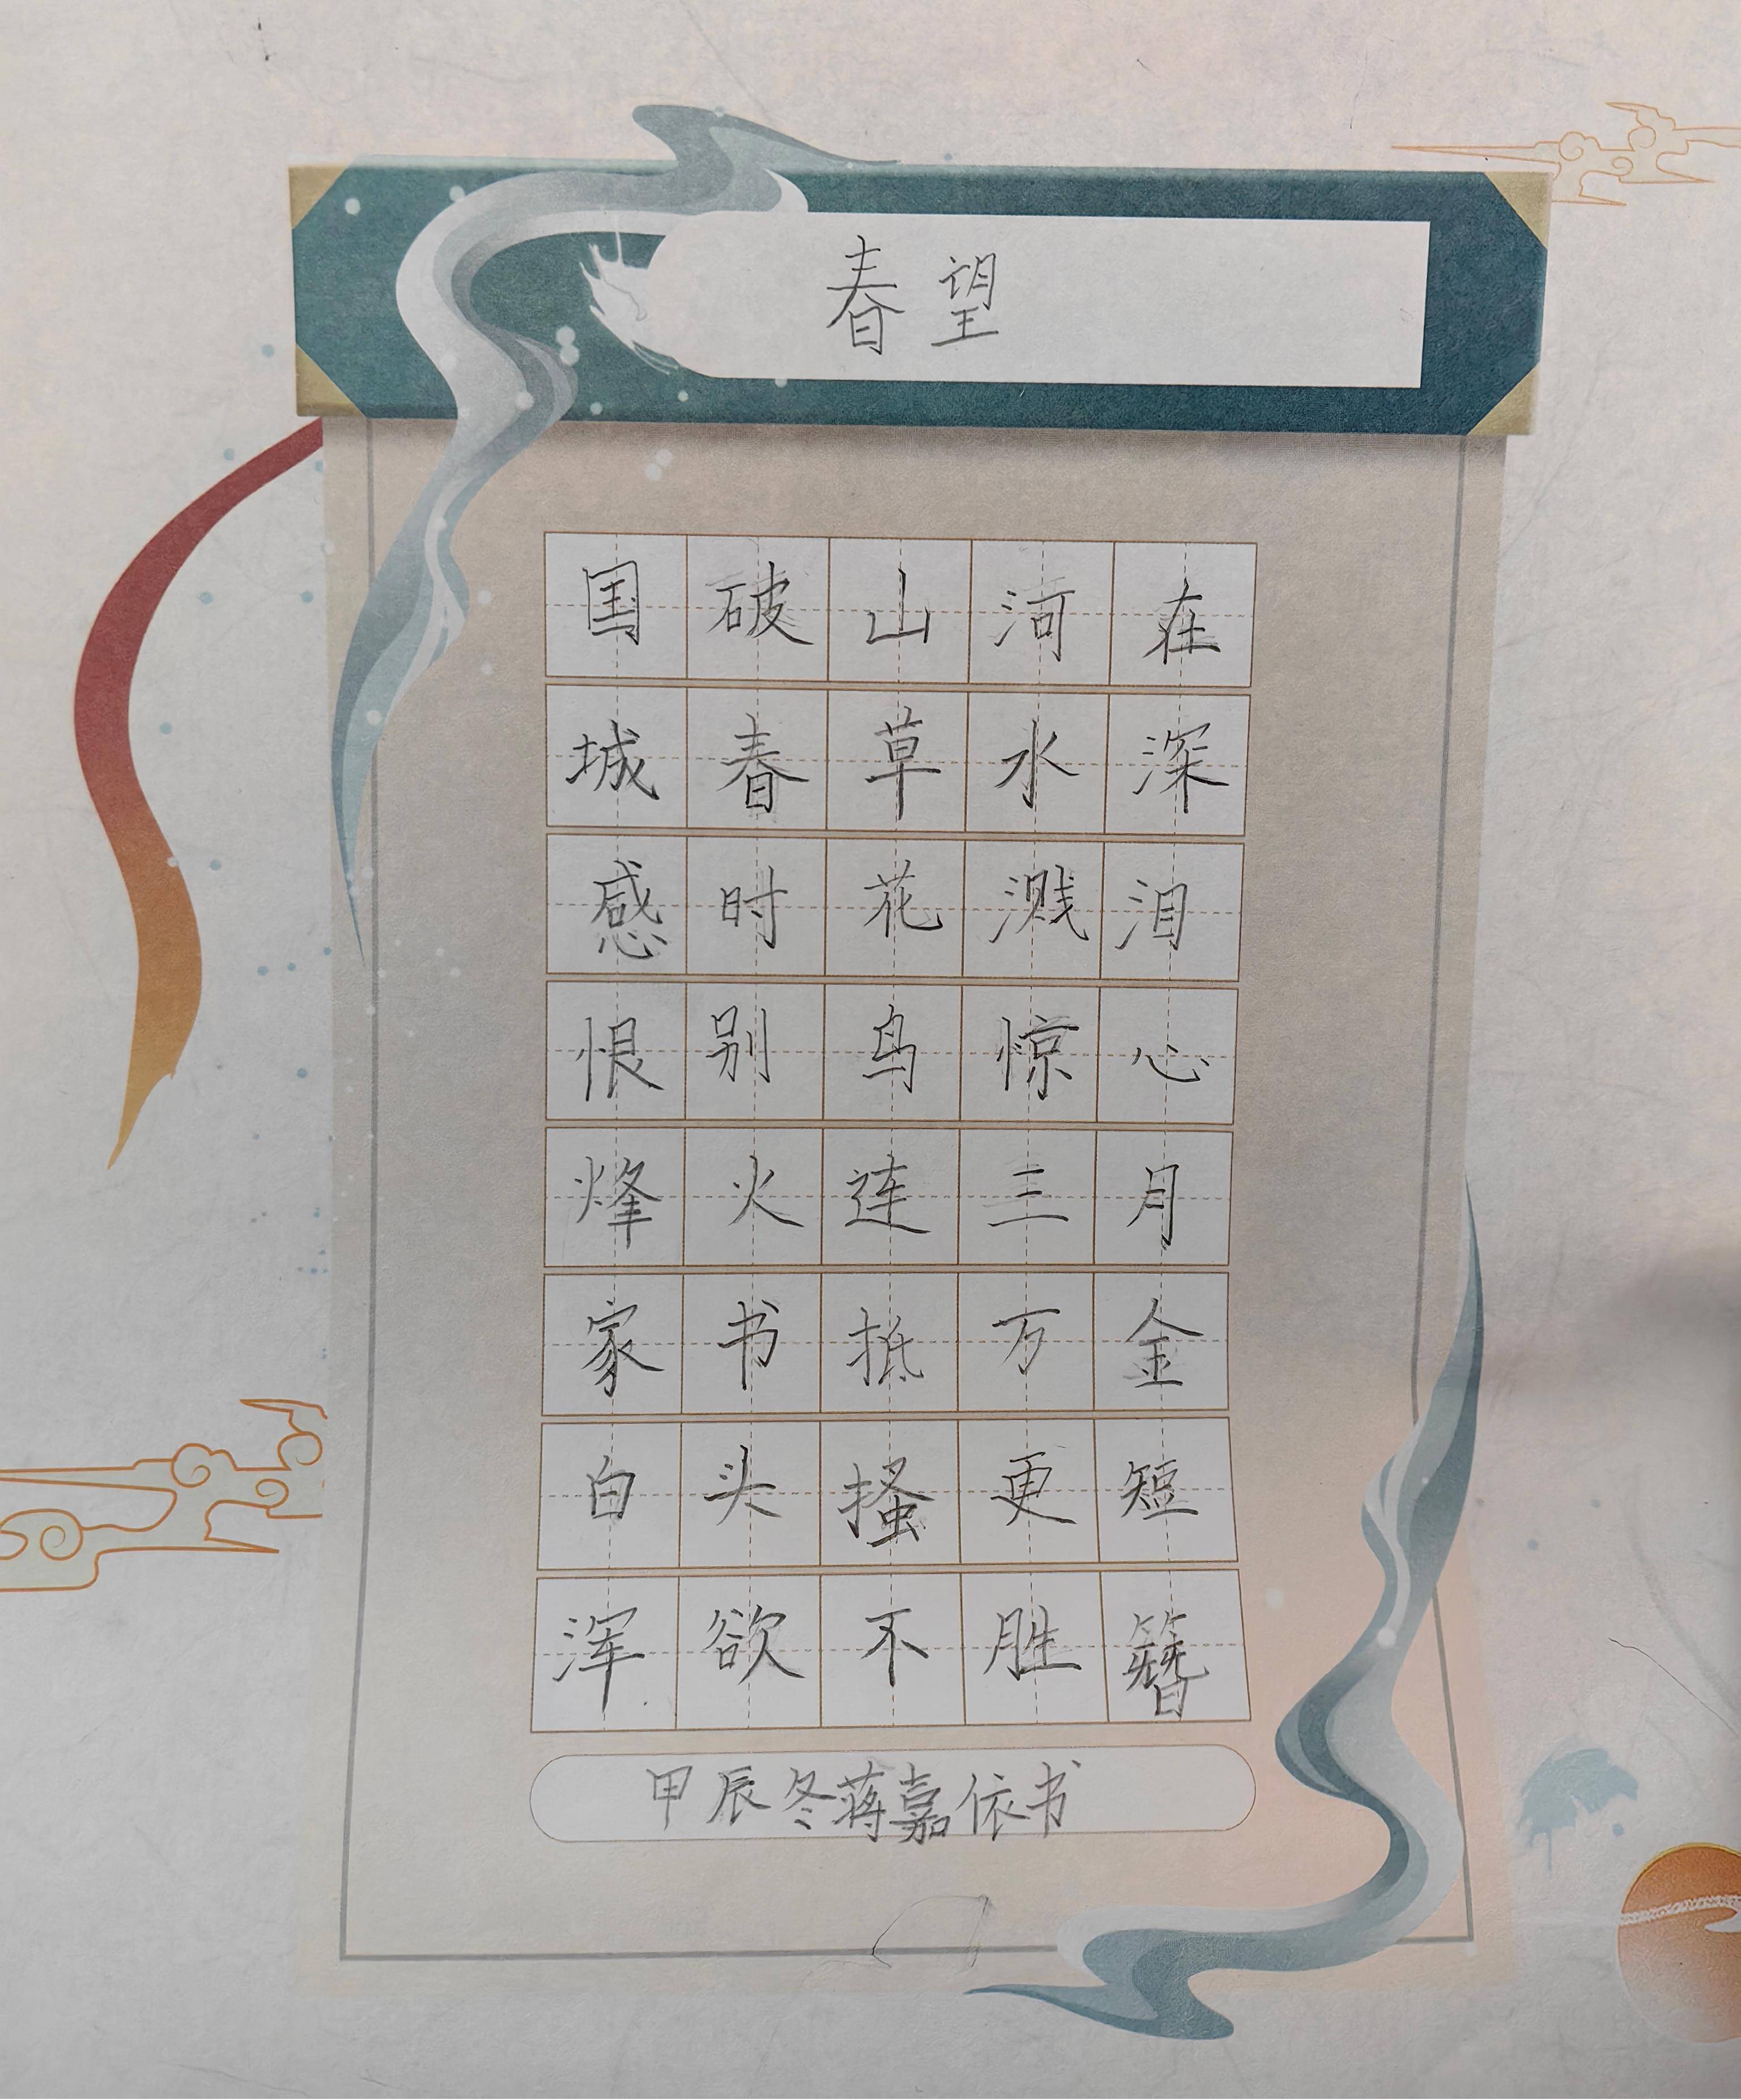 春望
国破山河在
城春草水深
感时花溅泪
恨别鸟惊心
烽火连三月
家书抵万金
白头搔更短
浑欲不胜簪
甲辰冬蒋嘉依书